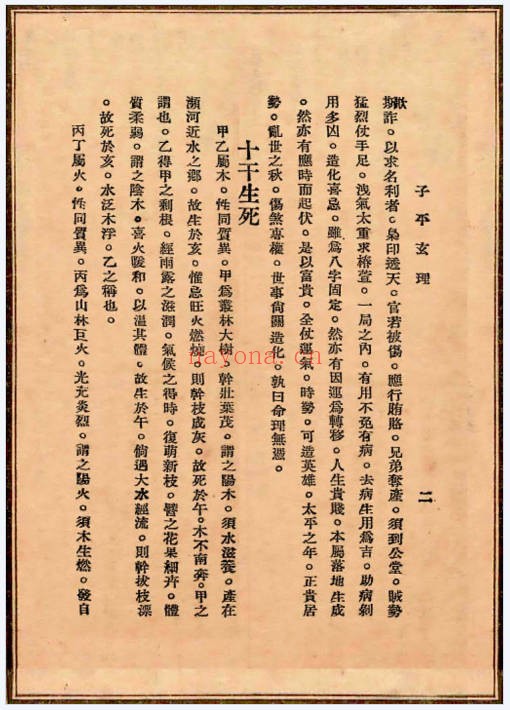 子平玄理
二
欺詐。以求名利者。梟印透天。官若被傷。應行賄賂。兄弟奪產。須到公堂。賊勢
猛烈仗手足。洩氣太重求椿萱。一局之內。有用不免有病。去病生用爲吉。助病剝
用多凶。造化喜忌。雖爲八字固定。然亦有因運爲轉移。人生貴賤。本屬落地生成
。然亦有應時而起伏。是以富貴。全仗運氣。時勢。可造英雄。太平之年。正貴居
勢。亂世之秋。傷煞專權。世事尙關造化。孰曰命理無憑。
十干生死
甲乙屬木。性同質異。甲爲叢林大樹。幹壯葉茂。謂之陽木。須水滋養。產在
瀕河近水之鄉。故生於亥。惟忌旺火燃燒。則幹枝成灰。故死於午。木不南奔。甲之
謂也。乙得甲之剩根。經雨露之滋潤。氣候之得時。復萌新枝。譬之花果細卉。體
質柔弱。謂之陰木。喜火暖和。以溫其體。故生於午。倘遇大水經流。則幹拔枝漂
。故死於亥。水泛木浮。乙之稱也。
丙丁屬火。性同質異。丙爲山林巨火。光充炎烈。謂之陽火。須木生燃。發自
nayona.cn